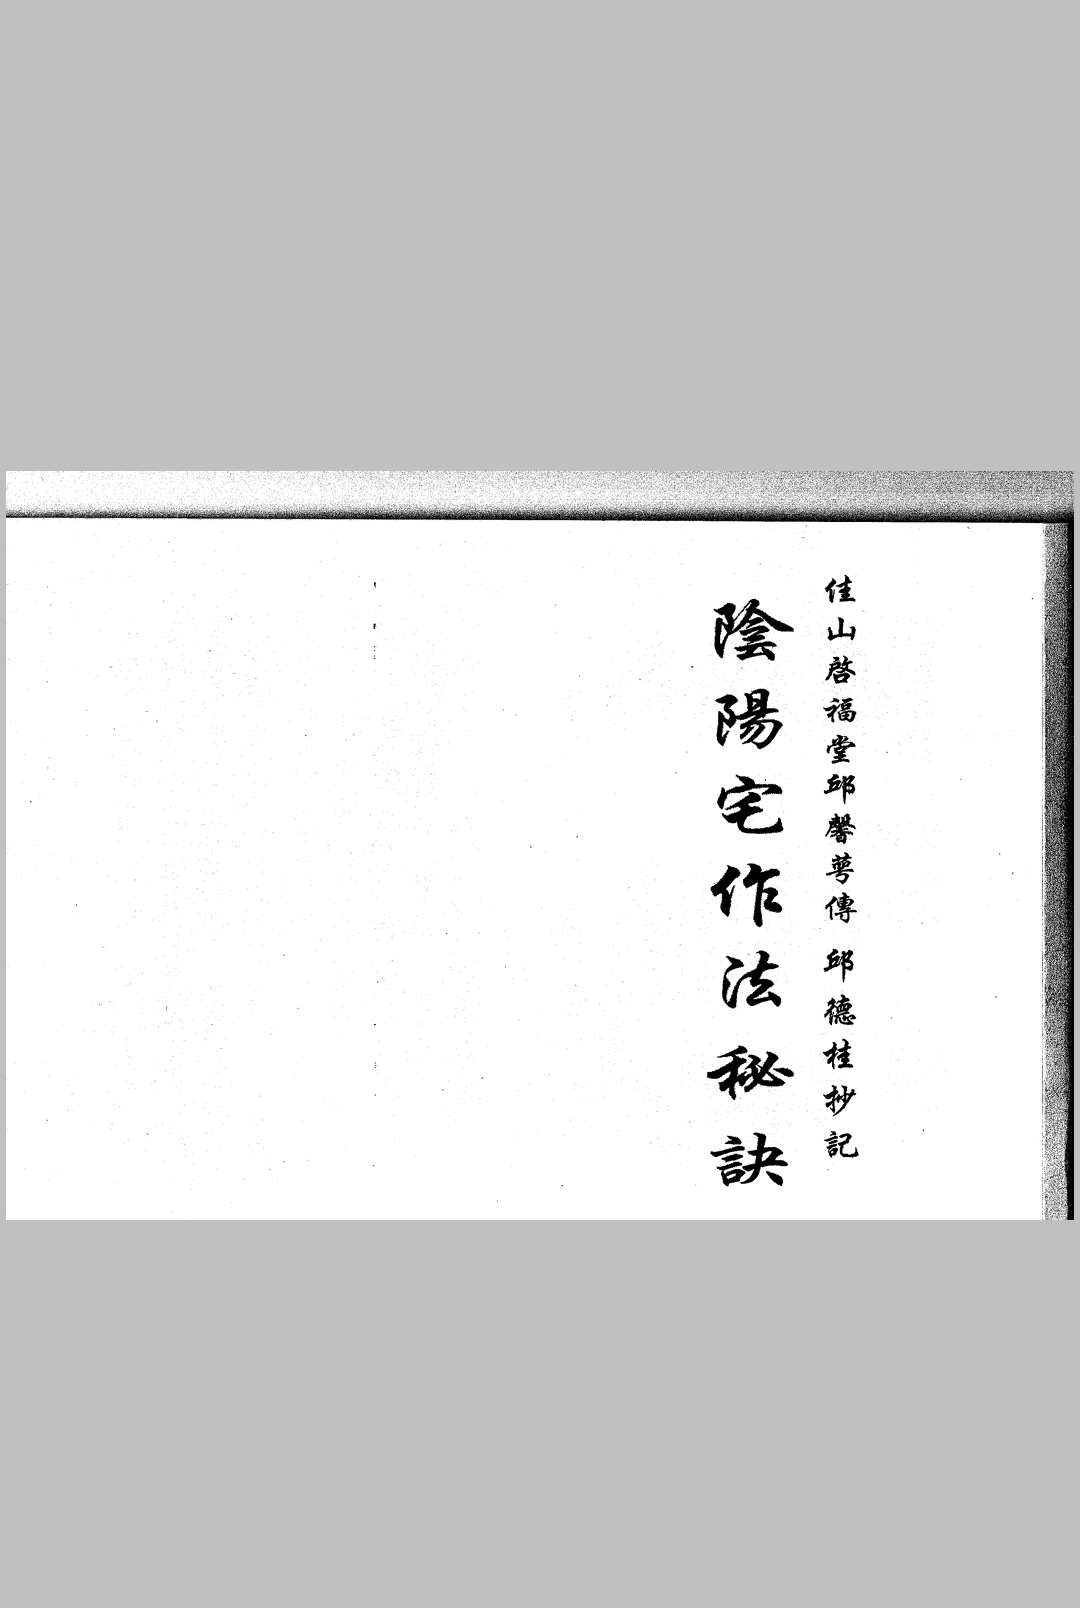 佳山啓福堂邱馨萼傳 邱德桂抄記
陰陽宅作法秘訣